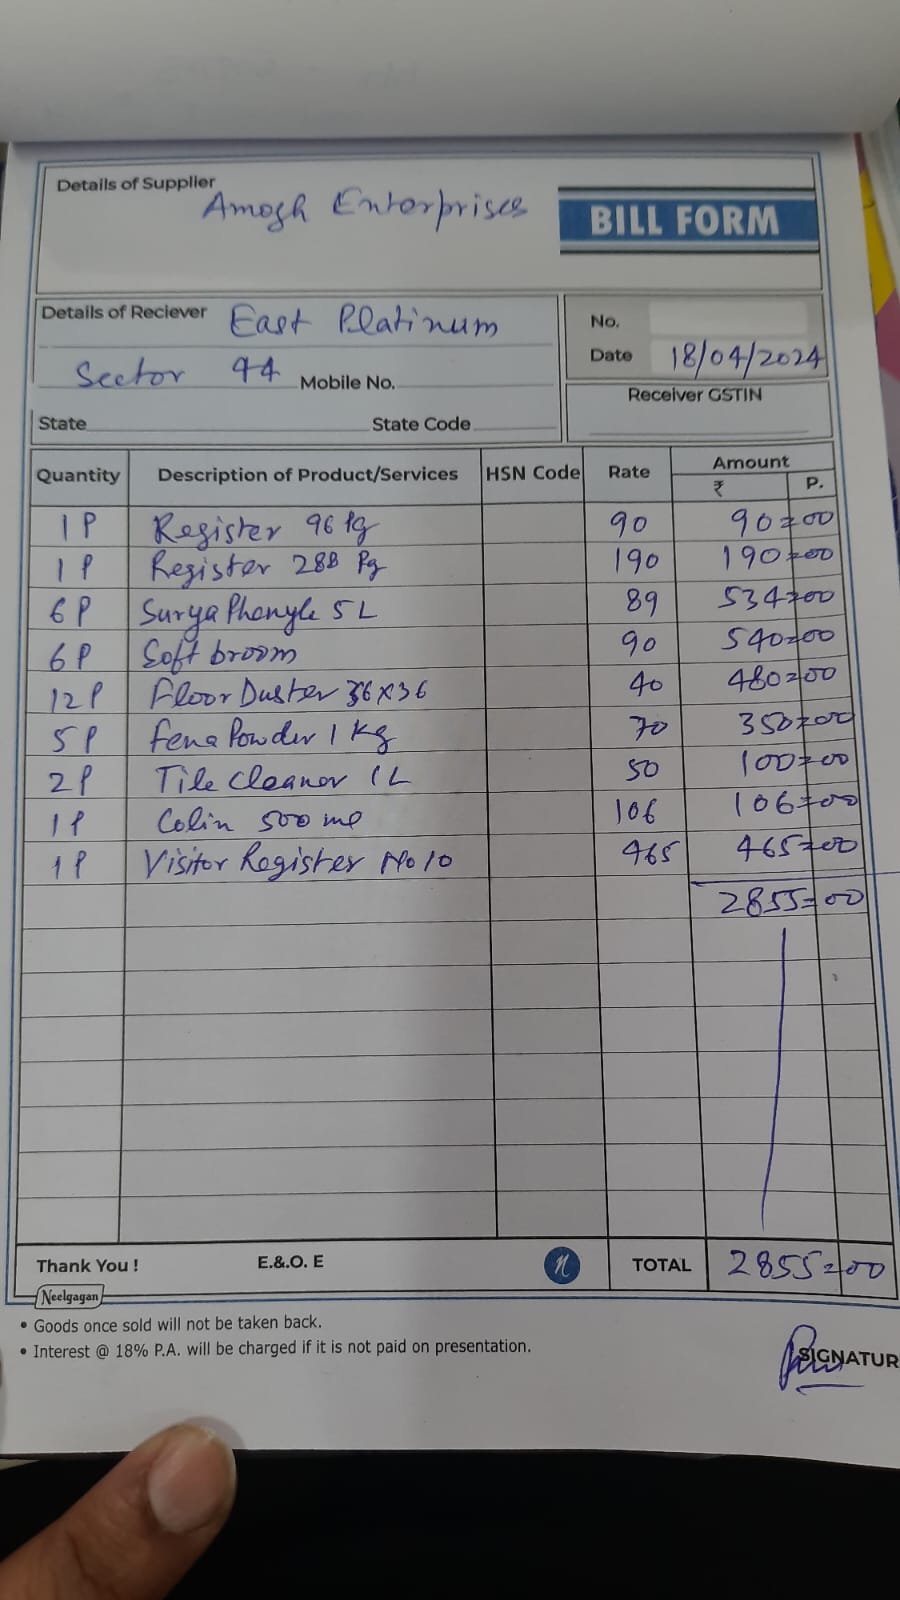 Details of Supplier Amogh Enterprises
BILL FORM
Details of Reciever East Platinum
Sector 44 Mobile No.
State State Code
No.
Date 18/04/2024
Receiver GSTIN
Quantity Description of Product/Services HSN Code Rate Amount
₹ P.
1P Register 96 Pg 90 90=00
1P Register 288 Pg 190 190=00
6P Surya Phenyle 5 L 89 534=00
6P Soft broom 90 540=00
12P Floor Duster 36x36 40 480=00
5P Fena Powder 1 Kg 70 350=00
2P Tile Cleaner 1 L 50 100=00
1P Colin 500 ml 106 106=00
1P Visitor Register No 10 465 465=00
2855=00
Thank You ! E.&.O. E n TOTAL 2855=00
Neelgagan
• Goods once sold will not be taken back.
• Interest @ 18% P.A. will be charged if it is not paid on presentation.
SIGNATUR